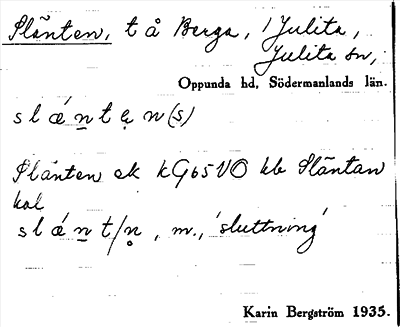 Slänten, t å Berga, i Julita,
Julita sn,
Oppunda hd, Södermanlands län.
slǽnten(s)
Slänten ek kG65VO kb Släntan
kol
slǽnt/n, m., 'sluttning'
Karin Bergström 1935.